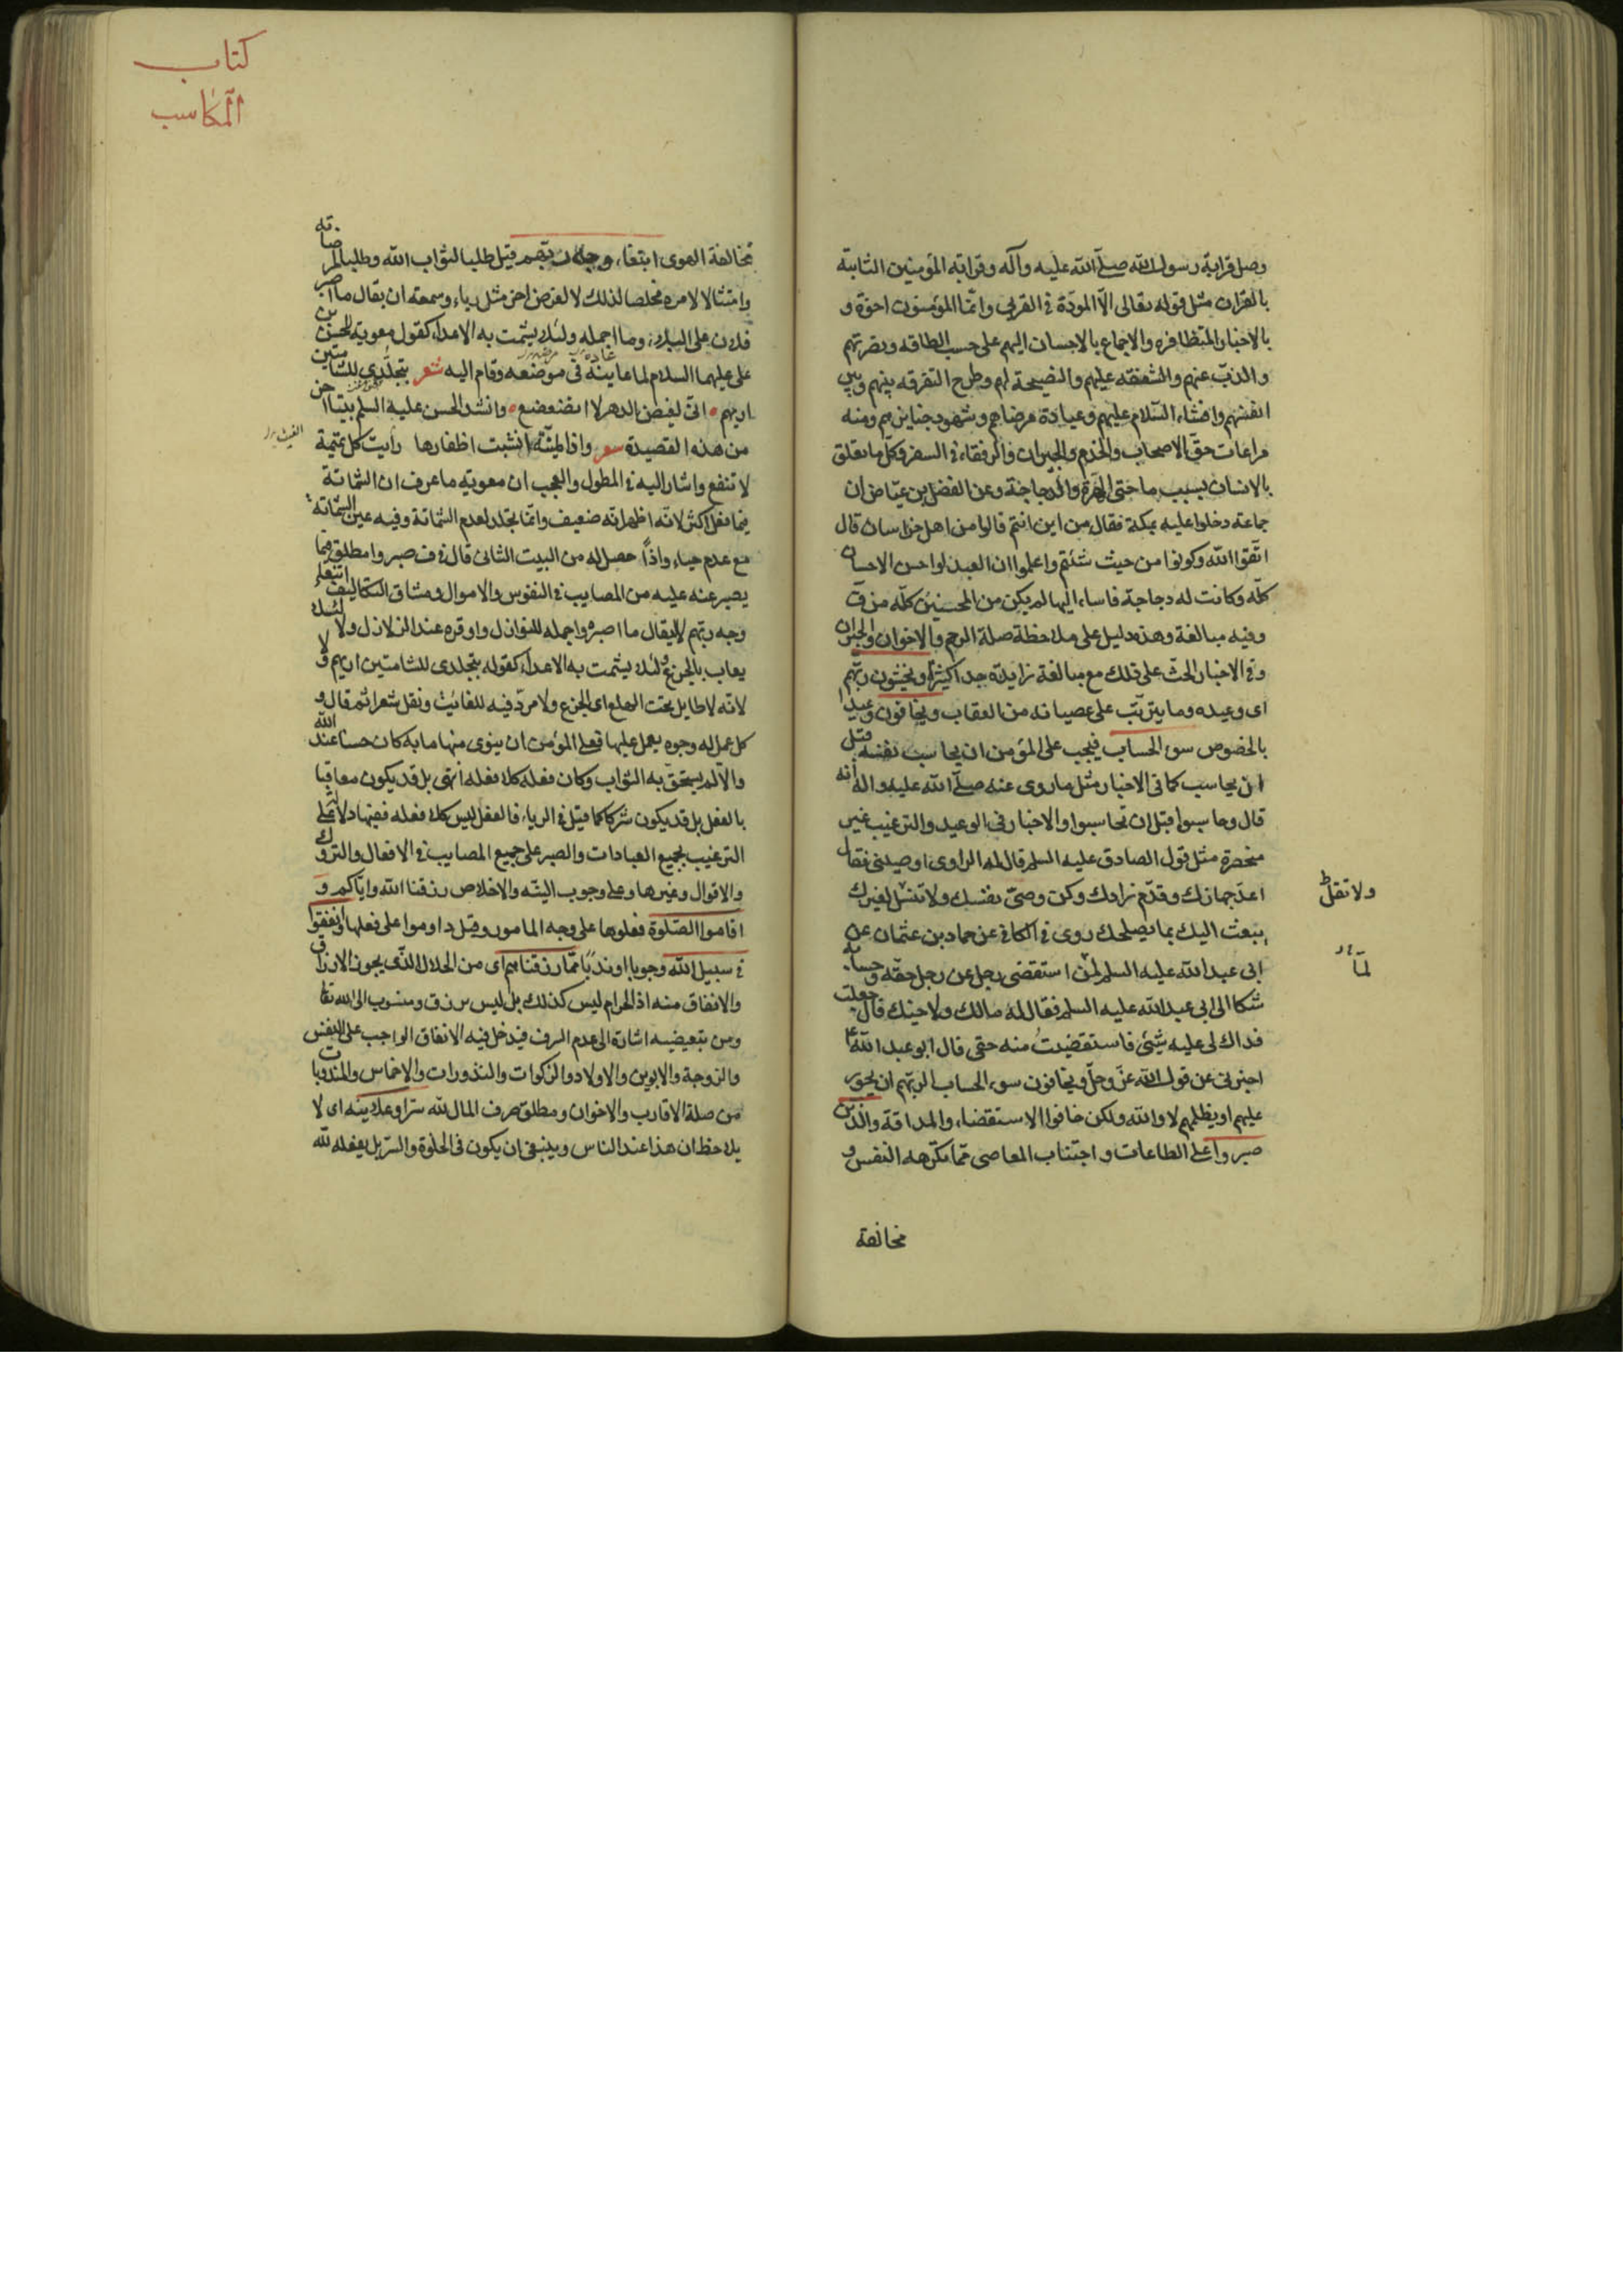 وصل قرابة رسول الله صلّى الله عليه وآله وقرابة المؤمنين الثابتة
بالقران مثل قوله تعالى الّا المودّة في القربى وانّما المؤمنون اخوة و
بالاخبار المتظافره والاجماع بالاحسان اليهم على حسب الطاقه ونصرتهم
والذبّ عنهم والشفقه عليهم والنصيحة لهم وطرح التفرقه بينهم وبين
انفسهم وافشاء السّلام عليهم وعيادة مرضاهم وشهود جنايزهم ومنه
مراعات حقّ الاصحاب والخدم والجيران والرفقاء في السفر وكلّ ما تعلق
بالانسان بسبب ما حتى الهرّة والدجاجة وعن الفضل بن عيّاض ان
جماعة دخلوا عليه بمكة فقال من اين انتم قالوا من اهل خراسان قال
اتّقوا الله وكونوا من حيث شئتم واعلموا ان العبد لو احسن الاحسان
كلّه وكانت له دجاجة فاساء اليها لم يكن من المحسنين كلّه من ق
وفيه مبالغة وهذه دليل على ملاحظة صلة الرحم والاخوان والجيران
وفي الاخبار الحثّ على ذلك مع مبالغة زايدة جدا كثيرا ويخشون ربّهم
اى وعيده وما يترتّب على عصيانه من العقاب ويخافون وعيدا
بالخصوص سوء الحساب فيجب على المؤمن ان يحاسب نفسه قبل
ان يحاسب كما في الاخبار مثل ما روى عنه صلّى الله عليه واله انه
قال وحاسبوا قبل ان تحاسبوا والاخبار في الوعيد والترغيب غير
منحصرة مثل قول الصادق عليه السلم قال له الراوى اوصينى فقال
اعدّ جهازك وقدّم زادك وكن وصىّ نفسك ولا تقل لغيرك
يبعث اليك بما يصلحك روى في الكافي عن حماد بن عثمان عن
ابى عبد الله عليه السلم لمن استقضى رجل عن رجل حقّه وحسابه
شكا الى ابى عبد الله عليه السلم فقال له مالك ولاخيك قال جعلت
فداك لى عليه شئ فاستقضيت منه حقى قال ابو عبد الله ع
اخبرنى عن قول الله عزّ وجلّ ويخافون سوء الحساب الربّهم ان يجور
عليهم او يظلمهم لا والله ولكن خافوا الاستقضاء والمداقة والّذين
صبروا على الطاعات واجتناب المعاصى ممّا تكرهه النفس و
مخالفة
ولا تقل ط
لمّا
كتاب
المكاسب
مخالفة الهوى ابتغاء وجه ربّهم قيل طلبا لثواب الله وطلبا لمرضاته
وامتثالا لامره مخلصا لذلك لا لغرض اخر مثل رياء وسمعه ان يقال ما اصبر
فلان على البلاء وما اجمله ولئلا يشمت به الاعداء كقول معوية للحسن بن
على عليهما السلام لما عاينه في موضعه وقام اليه شعر بتجلّدى للشامتين
اريهم انّى لغيض الدهر لا اتضعضع وانشد الحسن عليه السلم بيتا اخر
من هذه القصيدة شعر واذا المنيّة انشبت اظفارها رأيت كل تميمة
لا تنفع واشار اليه في المطول والعجب ان معويه ما عرف ان الشماتة
فيما فعل اكثر لانّه اظهر انّه ضعيف وانّما تجلد لعدم الشماتة وفيه عين الشماتة
مع عدم حياء واذاً حصل له من البيت الثانى قال في ف صبروا مطلق فيما
يصبر عنه عليه من المصايب في النفوس والاموال ومشاق التكاليف ابتغاء
وجه ربّهم لا ليقال ما اصبره واجمله للنوازل واوقره عند الزلازل ولا لئلا
يعاب بالجزع ولئلا يشمت به الاعداء كقوله بتجلدى للشامتين اريهم ولا
لانه لا طايل تحت الهلع اى الجزع ولا مردّ فيه للفائت ونقل شعرا ثم قال و
كل عمل له وجوه يعمل عليها فعلى المؤمن ان ينوى منها ما به كان حسنا عند الله
والّا لم يستحقّ به الثواب وكان فعله كلا فعله انتهى بل قد يكون معاقبا
بالفعل بل قد يكون شركا كما قيل في الرياء فالفعل ليس كلا فعله ففيها دلالة على
الترغيب بجميع العبادات والصبر على جميع المصايب في الافعال والتروك
والاقوال وغيرها وعلى وجوب النيّه والاخلاص رزقنا الله وايّاكم و
اقاموا الصّلوة فعلوها على وجه المامور وقيل داوموا على فعلها وانفقوا
في سبيل الله وجوبا او ندبًا ممّا رزقناهم اى من الحلال الّذى يجوز الارزاق
والانفاق منه اذ الحرام ليس كذلك بل ليس برزق ومنسوب الى الله تعا
ومن تبعيضيه اشارة الى عدم السرف فيدخل فيه الانفاق الواجب على النفس
والزوجة والابوين والاولاد والزكوات والنذورات والاخماس والمندوبات
من صلة الاقارب والاخوان ومطلق صرف المال لله سرّا وعلانيه اى لا
يلاحظ ان هذا عند الناس وينبغى ان يكون في الخلوة والسرّ بل يفعله لله